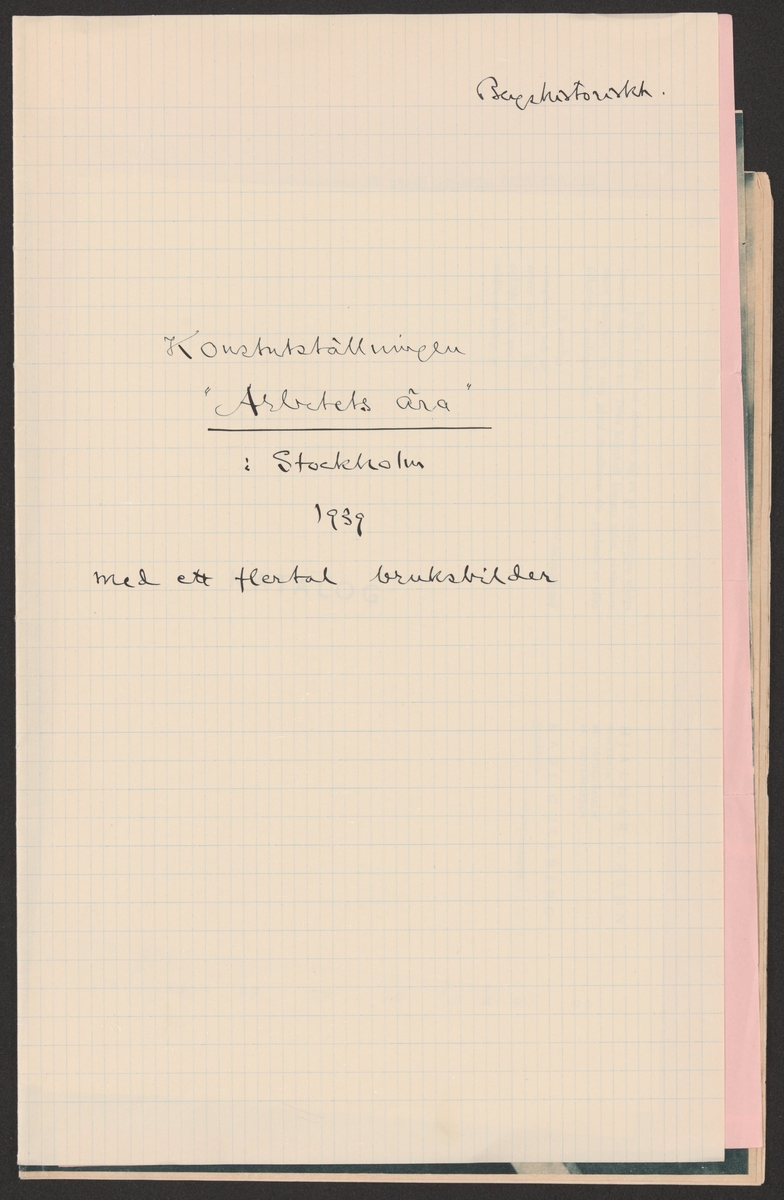 Bergshistoriskh.
Konstutställningen
"Arbetets ära"
i Stockholm
1939
med ett flertal bruksbilder